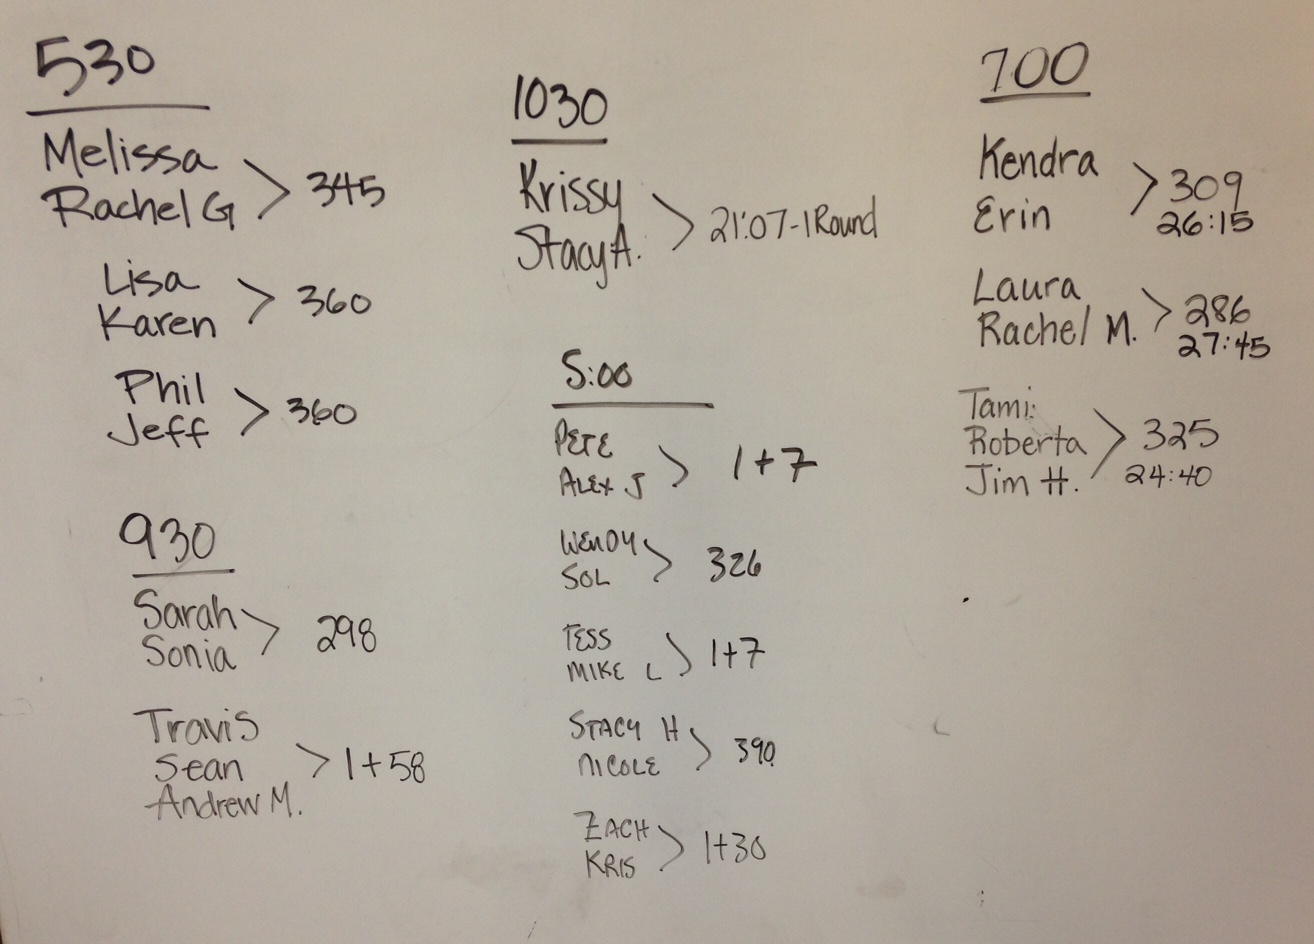 530
Melissa
Rachel G > 345
Lisa
Karen > 360
Phil
Jeff > 360
930
Sarah
Sonia > 298
Travis
Sean > 1+58
Andrew M.
1030
Krissy
Stacy A. > 21:07-1 Round
5:00
PETE
ALEX J > 1+7
WENDY
SOL > 326
TESS
MIKE L > 1+7
STACY H
NICOLE > 390
ZACH
KRIS > 1+30
700
Kendra > 309
Erin 26:15
Laura > 286
Rachel M. 27:45
Tami:
Roberta > 325
Jim H. 24:40